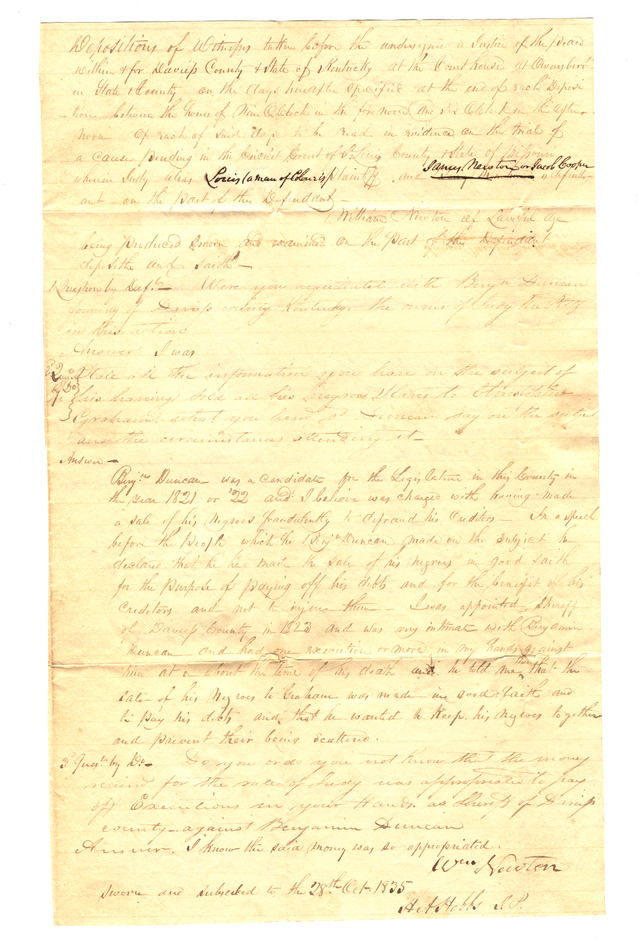 Depositions of Witness taken before the undersigned a Justice of the peace
within & for Daviess County & State of Kentucky at the Court house at Owensboro
in State & County on the days hereafter specified at the end of each Deposi
tion between the hours of Nine O Clock in the forenoon and six O Clock in the after
noon of each of said days to be read in evidence on the trial of
a cause pending in the Circuit Court of St Louis County & State of Missouri
wherein Judy alias Louis (a man of Colour) is plaintiff and James Newton or Jacob Cooper is Defend
ant on the part of the Defendant
William Newton of Lawful age
being produced sworn and examined on the part of the Defendant
deposeth and saith
1 Question by Deft. Were you acquainted with Benjn Duncan
of Daviess county Kentucky the owner of Judy the
in this action
Answer I was
2 Ques. by Do State all the information you have on the subject of
his having sold all his Negroes Slaves to
Graham, what you heard sd Duncan say on the subject
and the circumstances attending it
Answer
Benjn Duncan was a candidate for the Legislature in this County in
the year 1821 or '22 and I believe was charged with having made
a sale of his Negroes fraudulently to defraud his Creditors – In a speech
before the People which he (Benjn Duncan) made on the subject he
declared that he had made the sale of his negroes in good faith
for the Purpose of paying off his debts and for the benefit of his
Creditors and not to injure them – I was appointed Sheriff
of Daviess County in 1823 and was very intimate with Benjamin
Duncan and had one execution or more in my hands against
him at or about the time of his death and he told me then that the
sale of his Negroes to Graham was made in good faith and
to pay his debts and that he wanted to keep his Negroes together
and prevent their being scattered.
3d Quesn by Do Do you or do you not know that the money
received for the sale of Judy was appropriated to pay
off Executions in your Hands as Sheriff of Daviess
county against Benjamin Duncan
Answer. I know the said money was so appropriated.
Wm Newton
sworn and subscribed to the 28th Oct. 1835
Hobbs J.P.